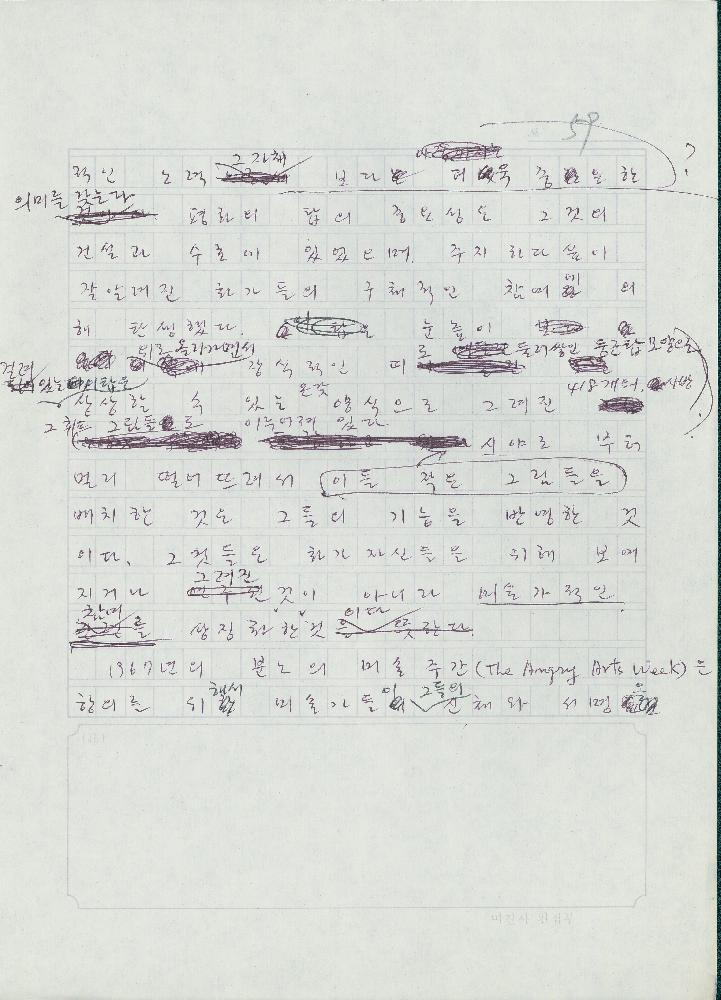 59
적인 노력 그 자체 보다 더욱 중요한 ?
의미를 갖는다
평화의 탑의 중요성은 그것의
건설과 수호에 있었으며, 주지하다싶이
잘 알려진 화가들의 구체적인 참여에 의
해 탄생했다. 눈높이
위로 올라가면서 장식적인 띠로 둘러쌓인 둥근탑 모양으로
걸려있는 이 탑은
상상할 수 있는 온갖 양식으로 그려진 418개의 사방
그림들로 이루어져 있다.
시야로부터
멀리 떨어뜨려서 이들 작은 그림들을
배치한 것은 그들의 기능을 반영한 것
이다. 그것들은 화가 자신들을 위해 보여
지거나 그려진 것이 아니라 미술가적인
참여를 상징화한 것이다.
1967년의 분노의 미술 주간(The Angry Arts Week)은
항의를 위해서 미술가들이 그들의 신체와 서명을
미진사 편집부